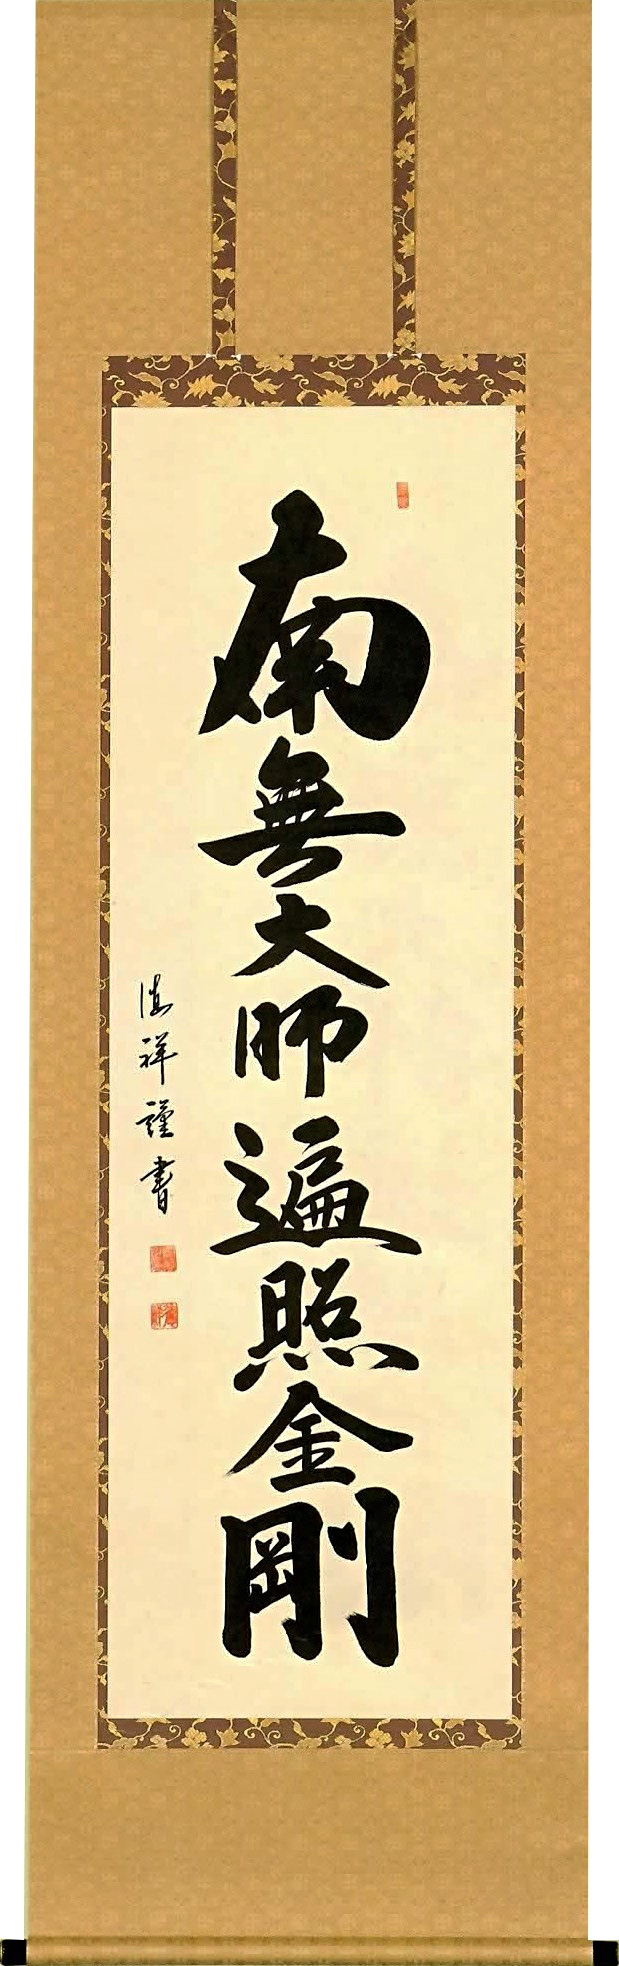 南無大師遍照金剛
海祥謹書